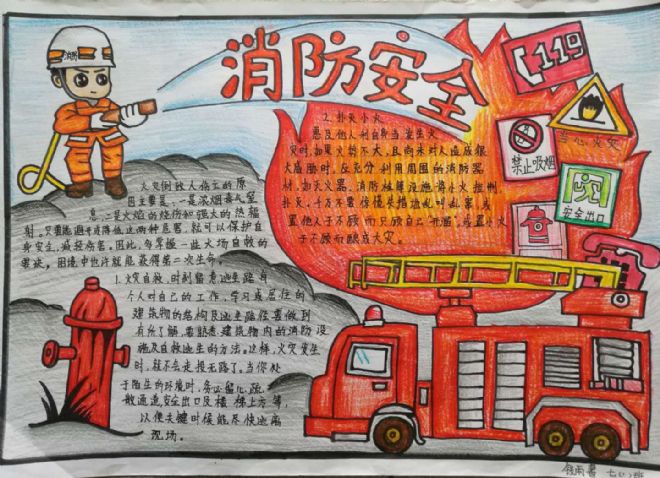 消防安全
119
当心火灾
禁止吸烟
安全出口
火灾伤人的原
因主要是:一是浓烟毒气窒
息,二是火焰的烧伤和强大的热辐
射。只要能避开或降低这两种危害,就可以保护自
身安全,减轻伤害。因此,多掌握一些火场自救的
要诀,困境中也许就能获得第二次生命。
1.火灾自救,时刻留意逃生路
人人对自己的工作,学习或居住的
建筑物的结构及逃生路径要做到
有所了解,要熟悉建筑物内的消防设
施及自救逃生的方法。这样,火灾发生
时,就不会走投无路了。当你处
于陌生的环境时,务必留心疏
散通道,安全出口及楼梯方等,
以便关键时候能尽快逃离
现场。
2.扑灭小火
惠及他人利自身当发生火
灾时,如果火势不大,且尚未对人造成很
大威胁时,应充分利用周围的消防器
材,如灭火器、消防栓等设施将小火控制、
扑灭。千万不要惊慌失措地乱叫乱窜,或
置他人于不顾而只顾自己"开溜",或置小火
于不顾而酿成大灾。